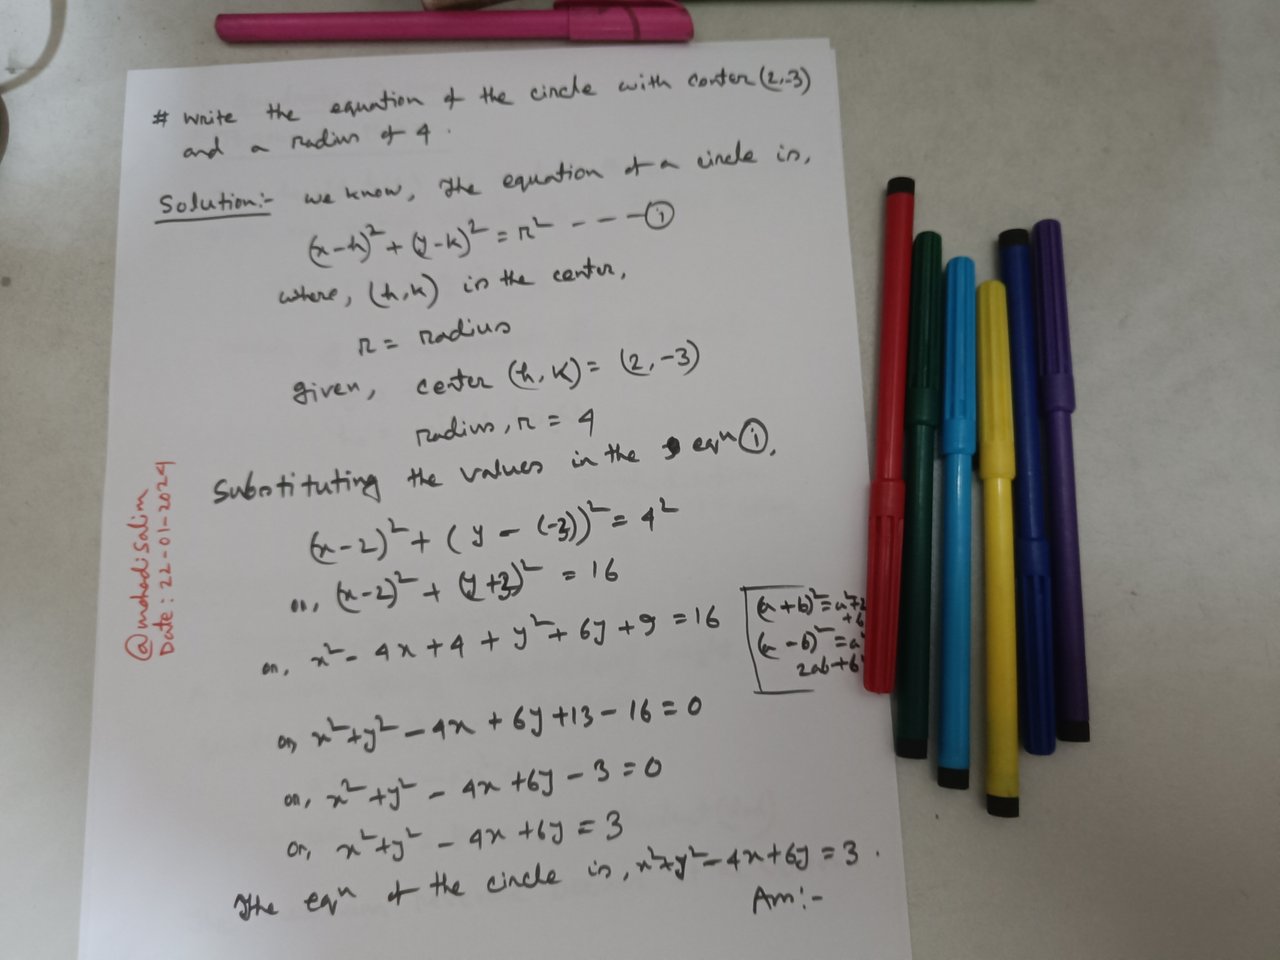 # Write the equation of the circle with center (2,-3)
and a radius of 4.
Solution:- we know, The equation of a circle is,
(x-h)² + (y-k)² = r² - - - ①
where, (h,k) is the center,
r = radius
given, center (h,k) = (2,-3)
radius, r = 4
Substituting the values in the eqn ①,
(x-2)² + (y - (-3))² = 4²
or, (x-2)² + (y+3)² = 16
or, x² - 4x + 4 + y² + 6y + 9 = 16
(a+b)² = a²+2
+b
(a-b)² = a²
2ab+b²
or, x²+y² - 4x + 6y + 13 - 16 = 0
or, x²+y² - 4x + 6y - 3 = 0
or, x²+y² - 4x + 6y = 3
The eqn of the circle is, x²+y² - 4x + 6y = 3.
Ans:-
@mohadisalim
Date: 22-01-2024